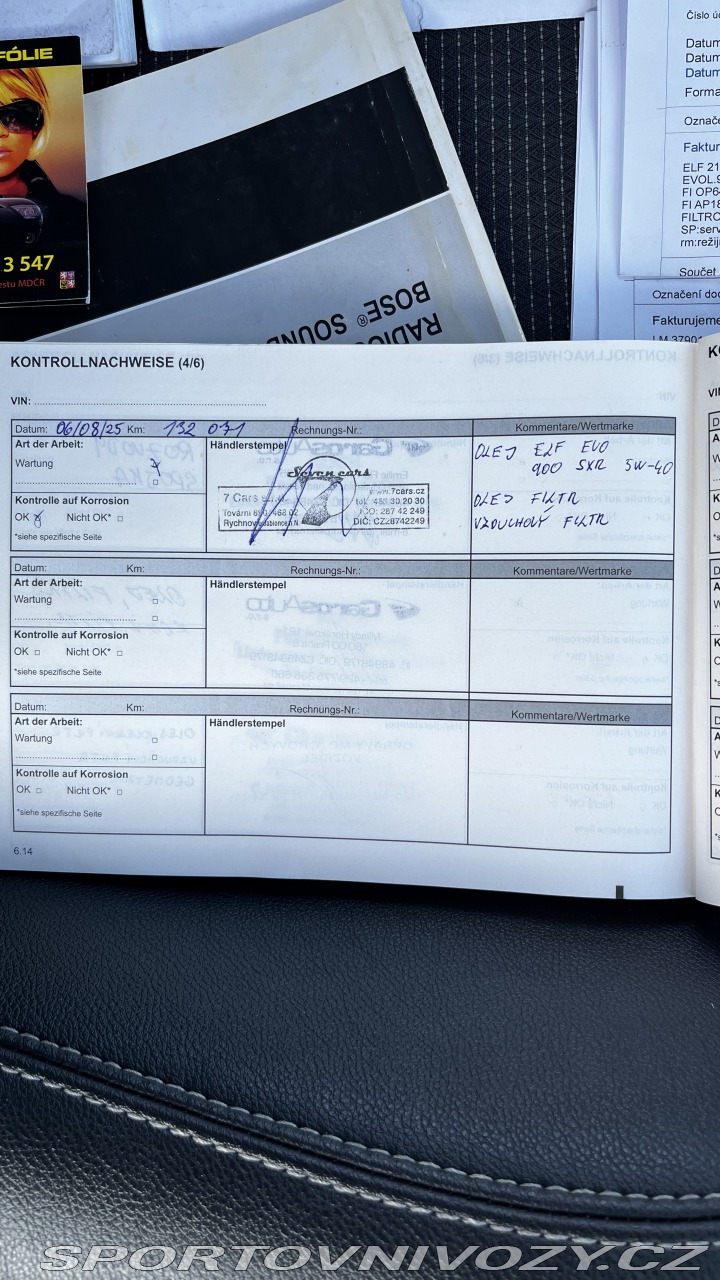 FÓLIE
3 547
estu MDČR
RADIO
BOSE® SOUN
Číslo úč
Datum
Datum
Datum
Forma
Označe
Faktur
ELF 21
EVOL.9
FI OP6
FI AP18
FILTRO
SP:serv
rm:režij
Součet
Označení dod
Fakturujeme
KONTROLLNACHWEISE (4/6)
VIN:
Datum: 06/08/25 Km: 132 071 Rechnungs-Nr.: Kommentare/Wertmarke
Art der Arbeit: Händlerstempel
Wartung
Kontrolle auf Korrosion
OK Nicht OK*
*siehe spezifische Seite
Seven cars
7 Cars
www.7cars.cz
Tovární
tel.
IČO: 287 42 249
DIČ: CZ28742249
OLEJ ELF EVO
900 SXR 5W-40
OLEJ FILTR
VZDUCHOVÝ FILTR
Datum: Km: Rechnungs-Nr.: Kommentare/Wertmarke
Art der Arbeit: Händlerstempel
Wartung
Kontrolle auf Korrosion
OK Nicht OK*
*siehe spezifische Seite
Datum: Km: Rechnungs-Nr.: Kommentare/Wertmarke
Art der Arbeit: Händlerstempel
Wartung
Kontrolle auf Korrosion
OK Nicht OK*
*siehe spezifische Seite
6.14
SPORTOVNIVOZY.CZ